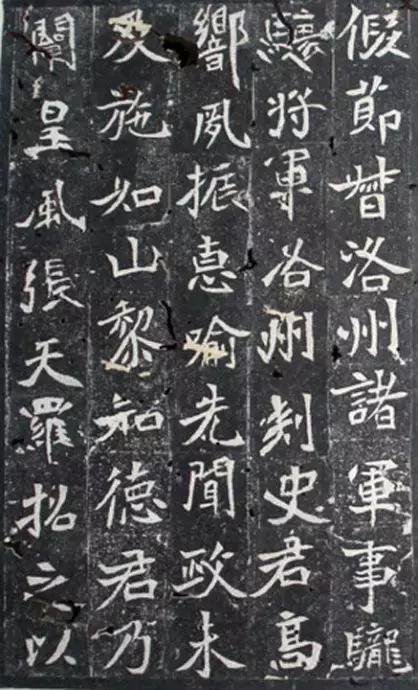 假節督洛州諸軍事龍
驤將軍洛州刺史君高
響夙振惠喻先聞政未
及施如山黎知德君乃
闡皇風張天羅招之以